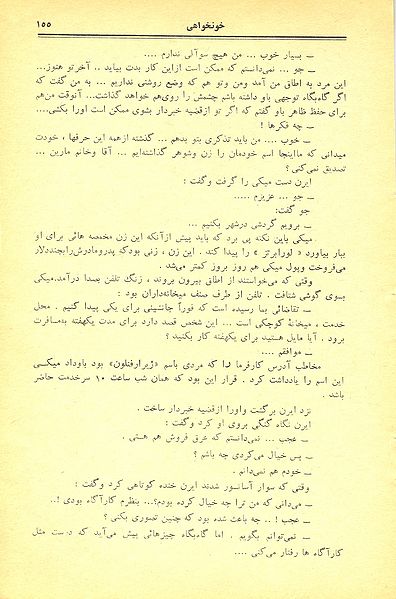 خونخواهی ۱۵۵
ــ بسیار خوب ... من هیچ سوآلی ندارم ....
ــ جو ... نمیدانستم که ممکن است ازاین کار بدت بیاید .. آخرتو هنوز...
این مرد به اطاق من آمد ومن وتو هم که وضع روشنی نداریم ... به من گفت که
اگر گاه‌بگاه توجهی باو داشته باشم چشمش را روی‌هم خواهد گذاشت... آنوقت من‌هم
برای حفظ ظاهر باو گفتم که اگر تو ازقضیه خبردار بشوی ممکن است اورا بکشی....
ــ چه فکرها !
ــ خوب .... من باید تذکری بتو بدهم ... گذشته ازهمه این حرفها ، خودت
میدانی که مااینجا اسم خودمان را زن وشوهر گذاشته‌ایم ... آقا وخانم مارین ...
تصدیق نمی‌کنی ؟
ایرن دست میکی را گرفت وگفت :
ــ جو ... عزیزم .....
جو گفت:
ــ برویم گردشی درشهر بکنیم ...
میکی باین نکته پی برد که باید پیش ازآنکه این زن مخمصه هائی برای او
ببار بیاورد « لورابرتز » را پیدا کند . این زن ، زنی بودکه پدرومادرش‌را بچنددلار
می‌فروخت وپول میکی هم روز بروز کمتر می‌شد .
وقتی که می‌خواستند از اطاق بیرون بروند ، زنگ تلفن بصدا درآمد.میکی
بسوی گوشی شتافت . تلفن از طرف صنف میخانه‌داران بود :
ــ تقاضائی بما رسیده است که فوراً جانشینی برای یکی پیدا کنیم . محل
خدمت ، میخانهٔ کوچکی است ... این شخص قصد دارد برای مدت یکهفته بمسافرت
برود . آیا مایل هستید برای یکهفته کار بکنید ؟
ــ موافقم ....
مخاطب آدرس کارفرما را که مردی باسم «ژیرارفنلون» بود باوداد میکی
این اسم را یادداشت کرد . قرار این بود که همان شب ساعت ۱۰ سرخدمت حاضر
باشد .
نزد ایرن برگشت واورا ازقضیه خبردار ساخت .
ایرن نگاه گنگی بروی او کرد وگفت :
ــ عجب ... نمی‌دانستم که عرق فروش هم هستی .
ــ پس خیال می‌کردی چه باشم ؟
ــ خودم هم نمی‌دانم .
وقتی که سوار آسانسور شدند ایرن خنده کوتاهی کرد وگفت :
ــ می‌دانی که من ترا چه خیال کرده بودم؟... بنظرم کارآگاه بودی !..
ــ عجب ! .. چه باعث شده بود که چنین تصوری بکنی ؟
ــ نمی‌توانم بگویم . اما گاه‌بگاه چیزهائی پیش می‌آید که درست مثل
کارآگاه ها رفتار می‌کنی ....